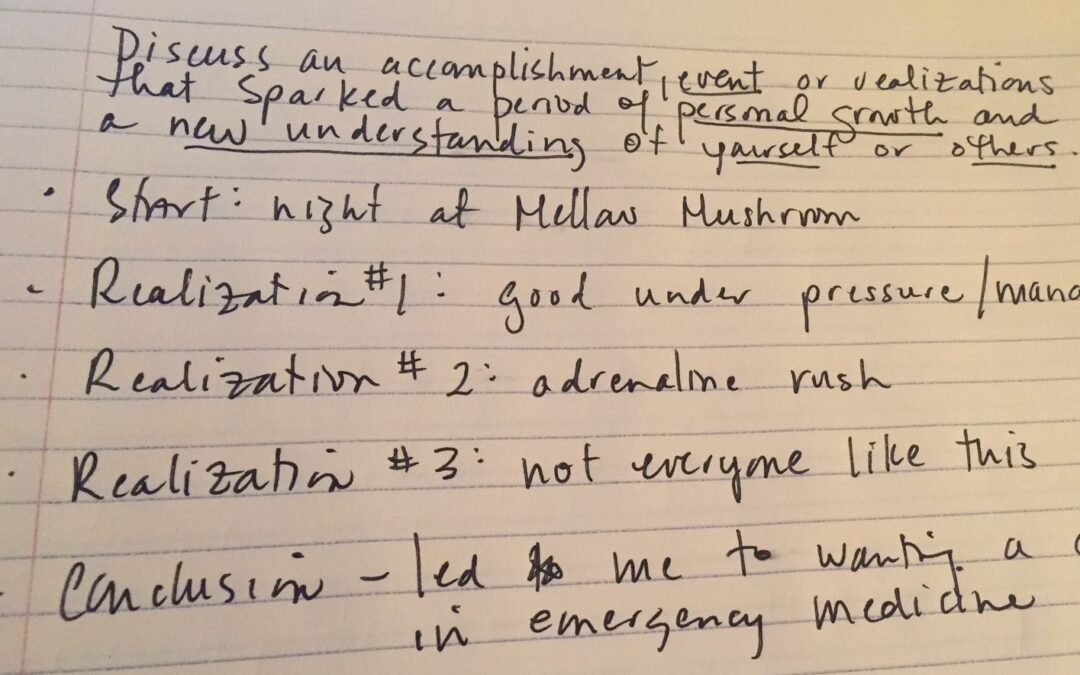 Discuss an accomplishment, event or realizations
that sparked a period of personal growth and
a new understanding of yourself or others.
• Start: night at Mellow Mushroom
- Realization #1: good under pressure/mana
• Realization #2: adrenaline rush
• Realization #3: not everyone like this
- Conclusion - led me to wanting a
in emergency medicine